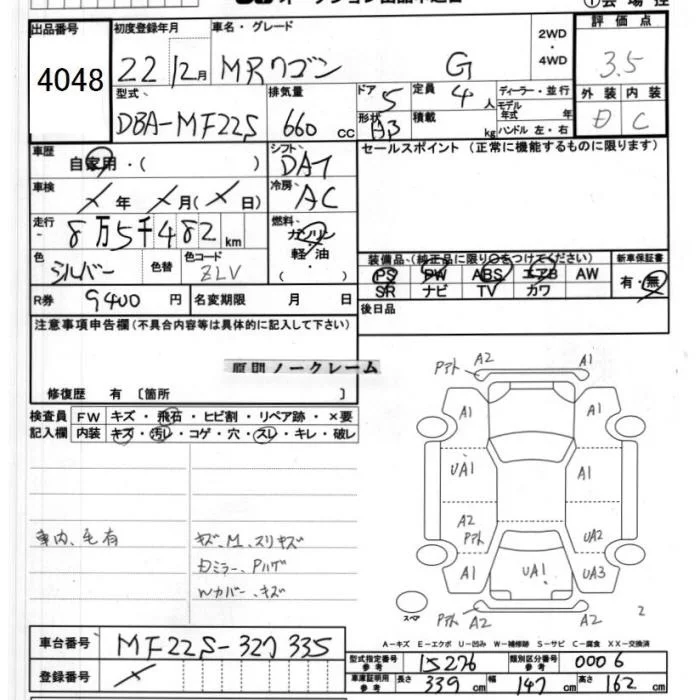 出品番号 初度登録年月 車名・グレード 2WD・4WD 評価点
4048 22 12月 MRワゴン G 3.5
型式 排気量 ドア 定員 ディーラー・並行 外装 内装
DBA-MF22S 660 cc 5 4 人 モデル年式 年 D C
形状 積載 kg ハンドル 左・右
車歴 自家用・( ) シフト DAT セールスポイント (正常に機能するものに限ります)
車検 × 年 × 月(×日) 冷房 AC
走行 8万5千482 km 燃料 ガソリン・軽油・( )
色 シルバー 色替 色コード ZLV
装備品 (純正品に限り○をつけてください) 新車保証書
PS PW ABS エアB AW 有・無
SR ナビ TV カワ
R券 9400 円 名変期限 月 日 後日品
注意事項申告欄(不具合内容等は具体的に記入して下さい)
ノークレーム
修復歴 有 〔箇所 〕
検査員 FW キズ・飛石・ヒビ割・リペア跡・×要
記入欄 内装 キズ・汚レ・コゲ・穴・スレ・キレ・破レ
車内、毛有 キズ、M、スリキズ
Wカバー、キズ
Pアト A2 A1
A1 A1
UA1 A1
A2 Pアト UA2
A1 UA1 UA3
スペア Pアト A2 A2 2
A-キズ E-エクボ U-凹み W-補修跡 S-サビ C-腐食 XX-交換済
車台番号 MF22S-327335
登録番号 ×
型式指定番号 参考 15276 類別区分番号 参考 0006
車庫証明用 参考 長さ 339 cm 幅 147 cm 高さ 162 cm